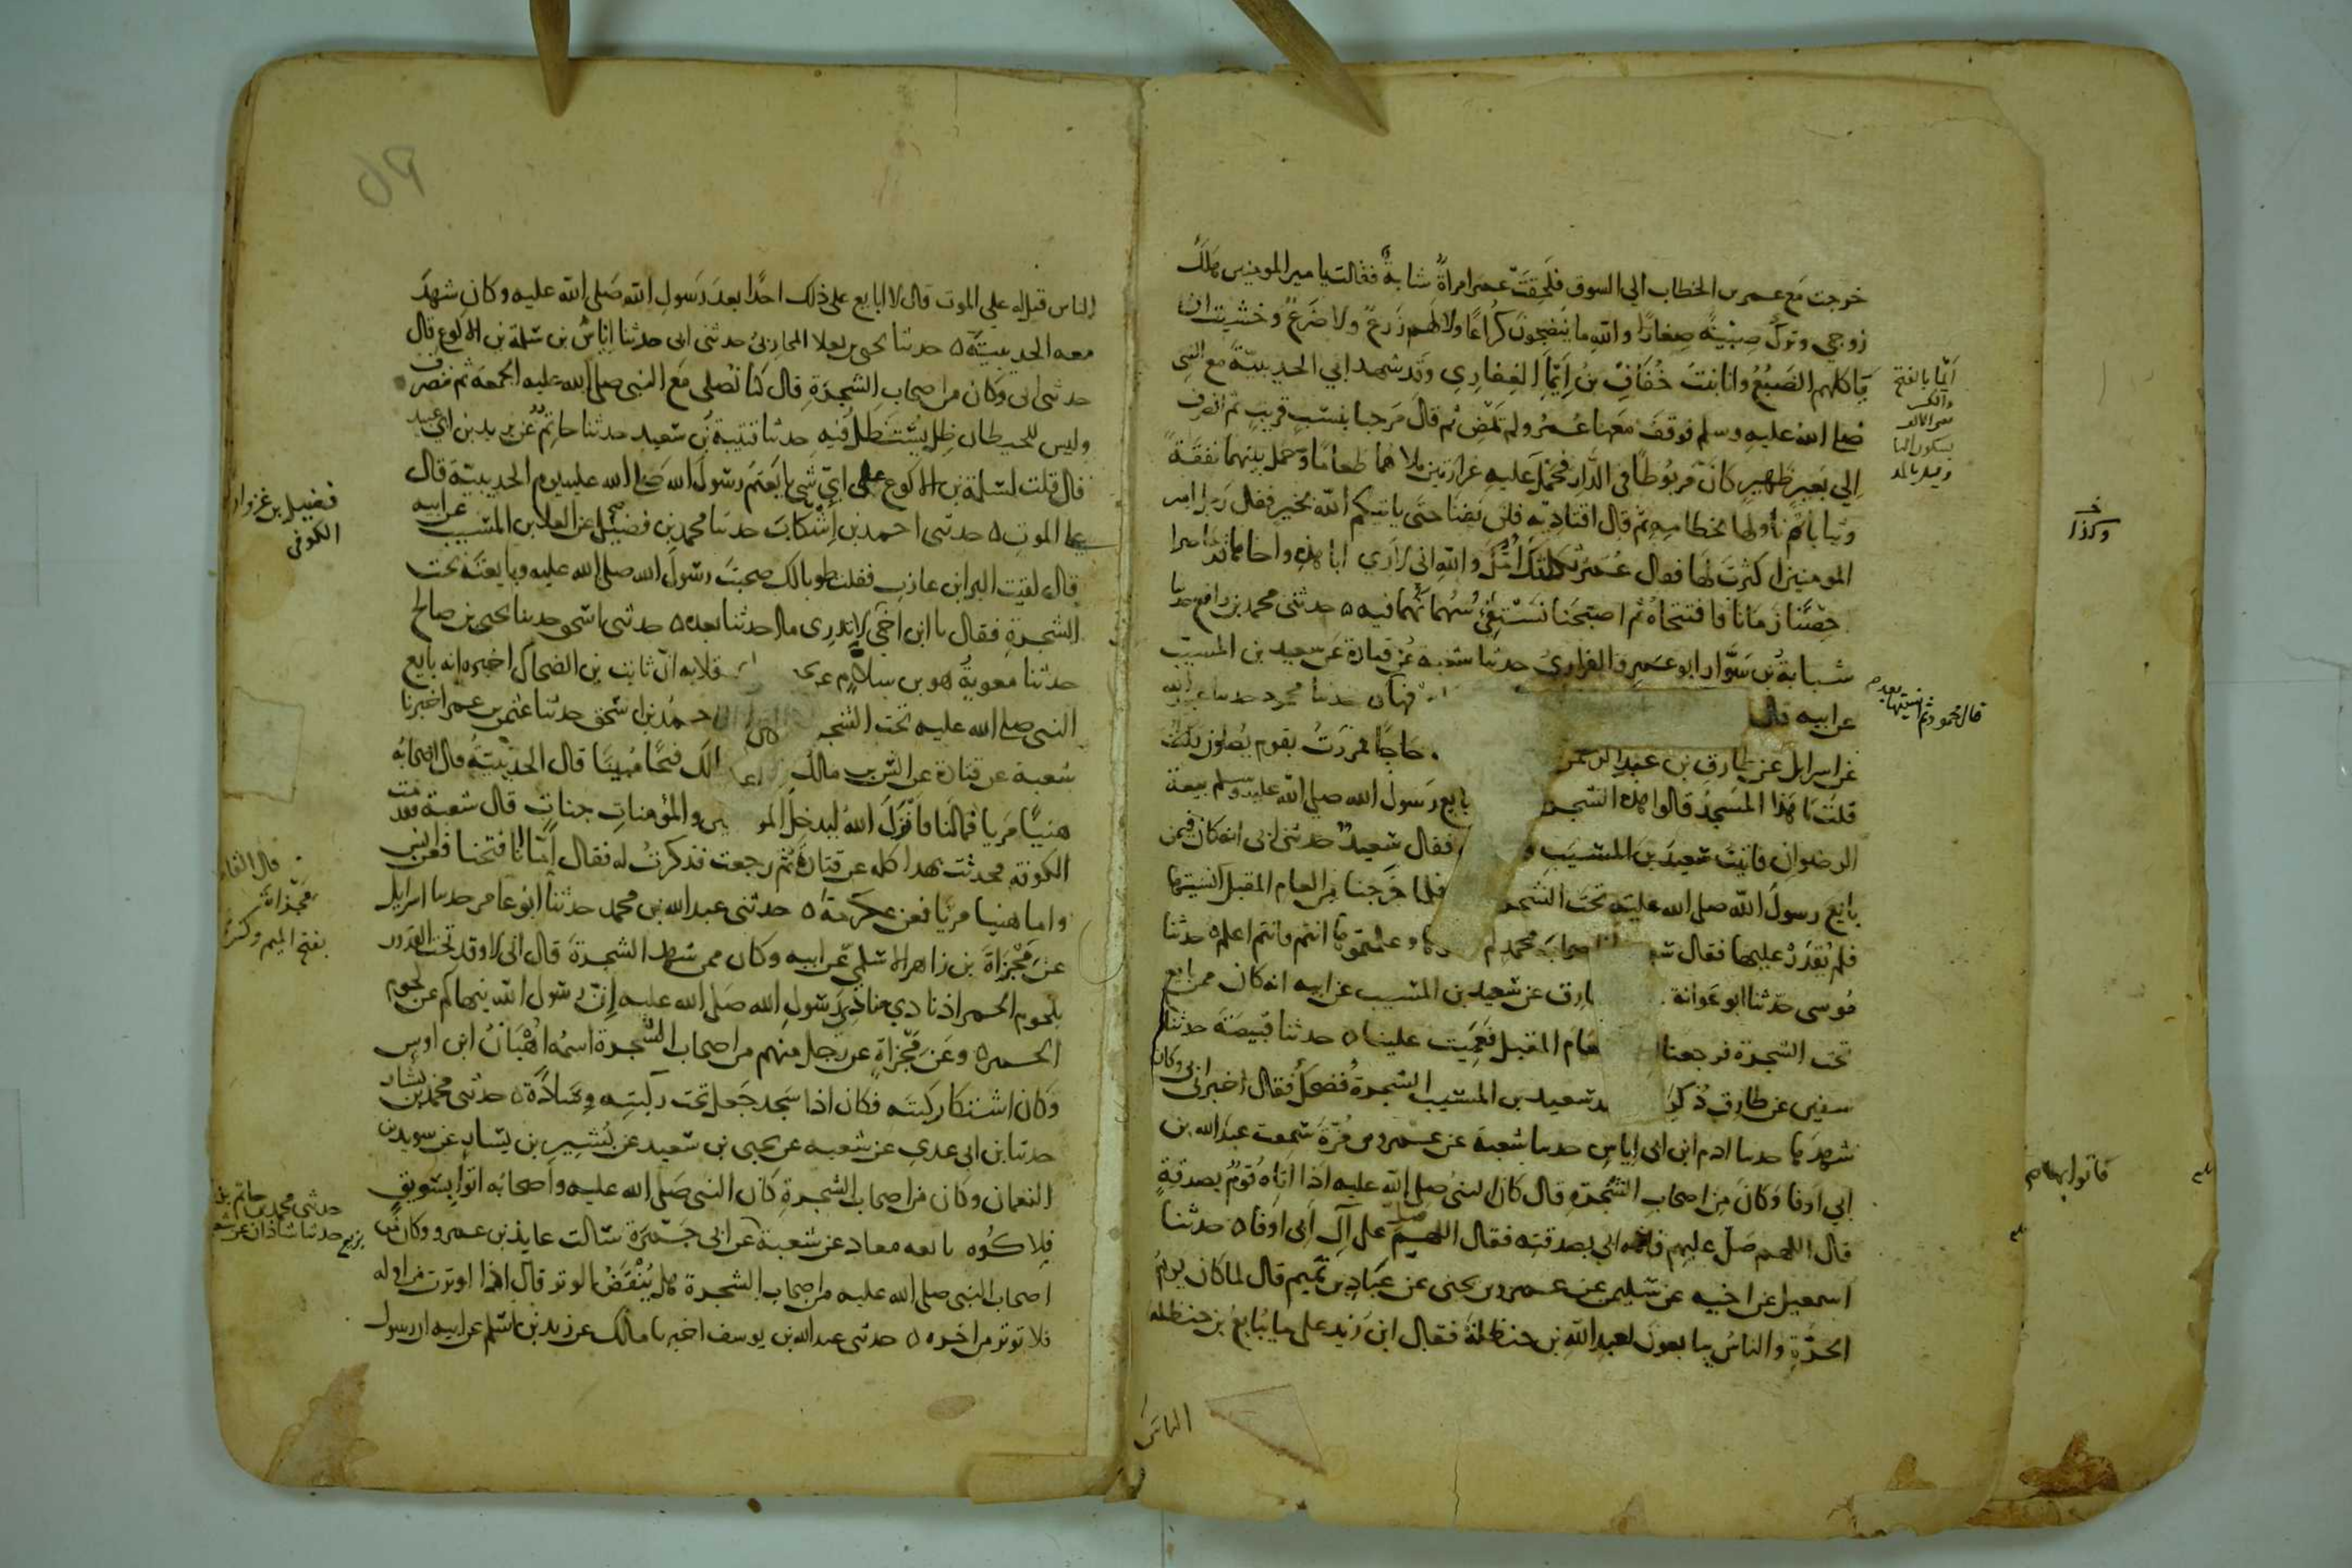 خرجت مع عمر بن الخطاب الي السوق فلحقت عمر امراة شابة فقالت يا امير المومنين هلك
زوجي وترك صبية صغارا والله ما ينضجون كراعا ولا لهم زرع ولا ضرع وخشيت ان
تاكلهم الضبع وانا بنت خفاف بن ايما الغفاري وقد شهد ابي الحديبية مع النبي
صلى الله عليه وسلم فوقف معها عمر ولم يمض ثم قال مرحبا بنسب قريب ثم انصرف
الي بعير ظهير كان مربوطا في الدار فحمل عليه غرارتين ملاهما طعاما وحمل بينهما نفقة
وثيابا ثم ناولها بخطامه ثم قال اقتاديه فلن يفنا حتى ياتيكم الله بخير فقال رجل يا امير
المومنين اكثرت لها فقال عمر ثكلتك امك والله اني لاري ابا هذه واخاها قد حاصرا
حصنا زمانا فافتتحاه ثم اصبحنا نستفئ سهمانهما فيه ٥ حدثني محمد بن رافع حدثنا
شبابة بن سوار ابو عمرو الفزاري حدثنا شعبة عن قتادة عن سعيد بن المسيب
عن ابيه قال حدثنا محمود حدثنا عبيد الله
عن اسرايل عن طارق بن عبد الرحمن حاجا فمررت بقوم يصلون
قلت ما هذا المسجد قالوا هذه الشجر بايع رسول الله صلى الله عليه وسلم بيعة
الرضوان فاتيت سعيد بن المسيب فقال سعيد حدثني ابي انه كان فيمن
بايع رسول الله صلى الله عليه تحت الشجر فلما خرجنا من العام المقبل انسيتها
فلم نقدر عليها فقال اصحاب محمد لم وعلمتموها انتم فانتم اعلم ٥ حدثنا
موسى حدثنا ابو عوانة طارق عن سعيد بن المسيب عن ابيه انه كان ممن بايع
تحت الشجرة فرجعنا العام المقبل فعميت علينا ٥ حدثنا قبيصة حدثنا
سفين عن طارق ذكر سعيد بن المسيب الشجرة فضحك فقال اخبرني ابي وكان
شهدها حدثنا ادم ابن ابي اياس حدثنا شعبة عن عمرو بن مرة سمعت عبد الله بن
ابي اوفا وكان من اصحاب الشجرة قال كان النبي صلى الله عليه اذا اتاه قوم بصدقة
قال اللهم صل عليهم فاتاه ابي بصدقته فقال اللهم صل على آل ابي اوفا ٥ حدثنا
اسمعيل عن اخيه عن سليمن عن عمرو بن يحيى عن عباد بن تميم قال لما كان يوم
الحرة والناس يبايعون لعبد الله بن حنظلة فقال ابن زيد على ما يبايع بن حنظلة
الناس
ايما بالفتح
والكسر
قال محمود ثم انسيتها بعد
وكذا
فاتوا بها
الناس قيل له علي الموت قال لا ابايع على ذلك احدا بعد رسول الله صلى الله عليه وكان شهد
معه الحديبية ٥ حدثنا يحيى بن يعلا المحاربي حدثني ابي حدثنا اياس بن سلمة بن الاكوع قال
حدثني ابي وكان من اصحاب الشجرة قال كنا نصلي مع النبي صلى الله عليه الجمعة ثم ننصرف
وليس للحيطان ظل يستظل فيه حدثنا قتيبة بن سعيد حدثنا حاتم عن يزيد بن ابي عبيد
قال قلت لسلمة بن الاكوع على اي شي بايعتم رسول الله صلى الله عليه يوم الحديبية قال
على الموت ٥ حدثني احمد بن اشكاب حدثنا محمد بن فضيل عن العلا بن المسيب عن ابيه
قال لقيت البرا بن عازب فقلت طوبا لك صحبت رسول الله صلى الله عليه وبايعته تحت
الشجرة فقال يا ابن اخي لا تدري ما احدثنا بعده ٥ حدثني اسحق حدثنا يحيى بن صالح
حدثنا معوية هو بن سلام عن قلابه ان ثابت بن الضحاك اخبره انه بايع
النبي صلى الله عليه تحت الشجر احمد بن اسحق حدثنا عثمن بن عمر اخبرنا
شعبة عن قتادة عن انس بن مالك لك فتحا مبينا قال الحديبية قال اصحابه
هنيا مريا فما لنا فانزل الله ليدخل المو والمؤمنات جنات قال شعبة فقدمت
الكوفة فحدثت بهذا كله عن قتادة ثم رجعت فذكرت له فقال اما انا فتحنا فعن انس
واما هنيا مريا فعن عكرمة ٥ حدثني عبد الله بن محمد حدثنا ابو عامر حدثنا اسرايل
عن مجزاة بن زاهر الاسلمي عن ابيه وكان ممن شهد الشجرة قال اني لاوقد تحت القدور
بلحوم الحمر اذ نادي منادي رسول الله صلى الله عليه ان رسول الله ينهاكم عن لحوم
الحمر ٥ وعن مجزاة عن رجل منهم من اصحاب الشجرة اسمه اهبان ابن اوس
وكان اشتكا ركبته فكان اذا سجد جعل تحت ركبته وسادة ٥ حدثني محمد بن بشار
حدثنا بن ابي عدي عن شعبه عن يحيى بن سعيد عن بشير بن يسار عن سويد بن
النعمان وكان من اصحاب الشجرة كان النبي صلى الله عليه واصحابه اتوا بسويق
فلاكوه تابعه معاذ عن شعبة عن ابي جمرة سالت عايذ بن عمرو وكان من
اصحاب النبي صلى الله عليه من اصحاب الشجرة هل ينقض الوتر قال اذا اوترت من اوله
فلا توتر من اخره ٥ حدثني عبد الله بن يوسف اخبرنا مالك عن زيد بن اسلم عن ابيه ان رسول
فضيل بن غزوان
الكوفي
مجزاة
بفتح الميم وكسر
حدثني محمد بن حاتم بن
بزيع حدثنا شاذان عن شعبة